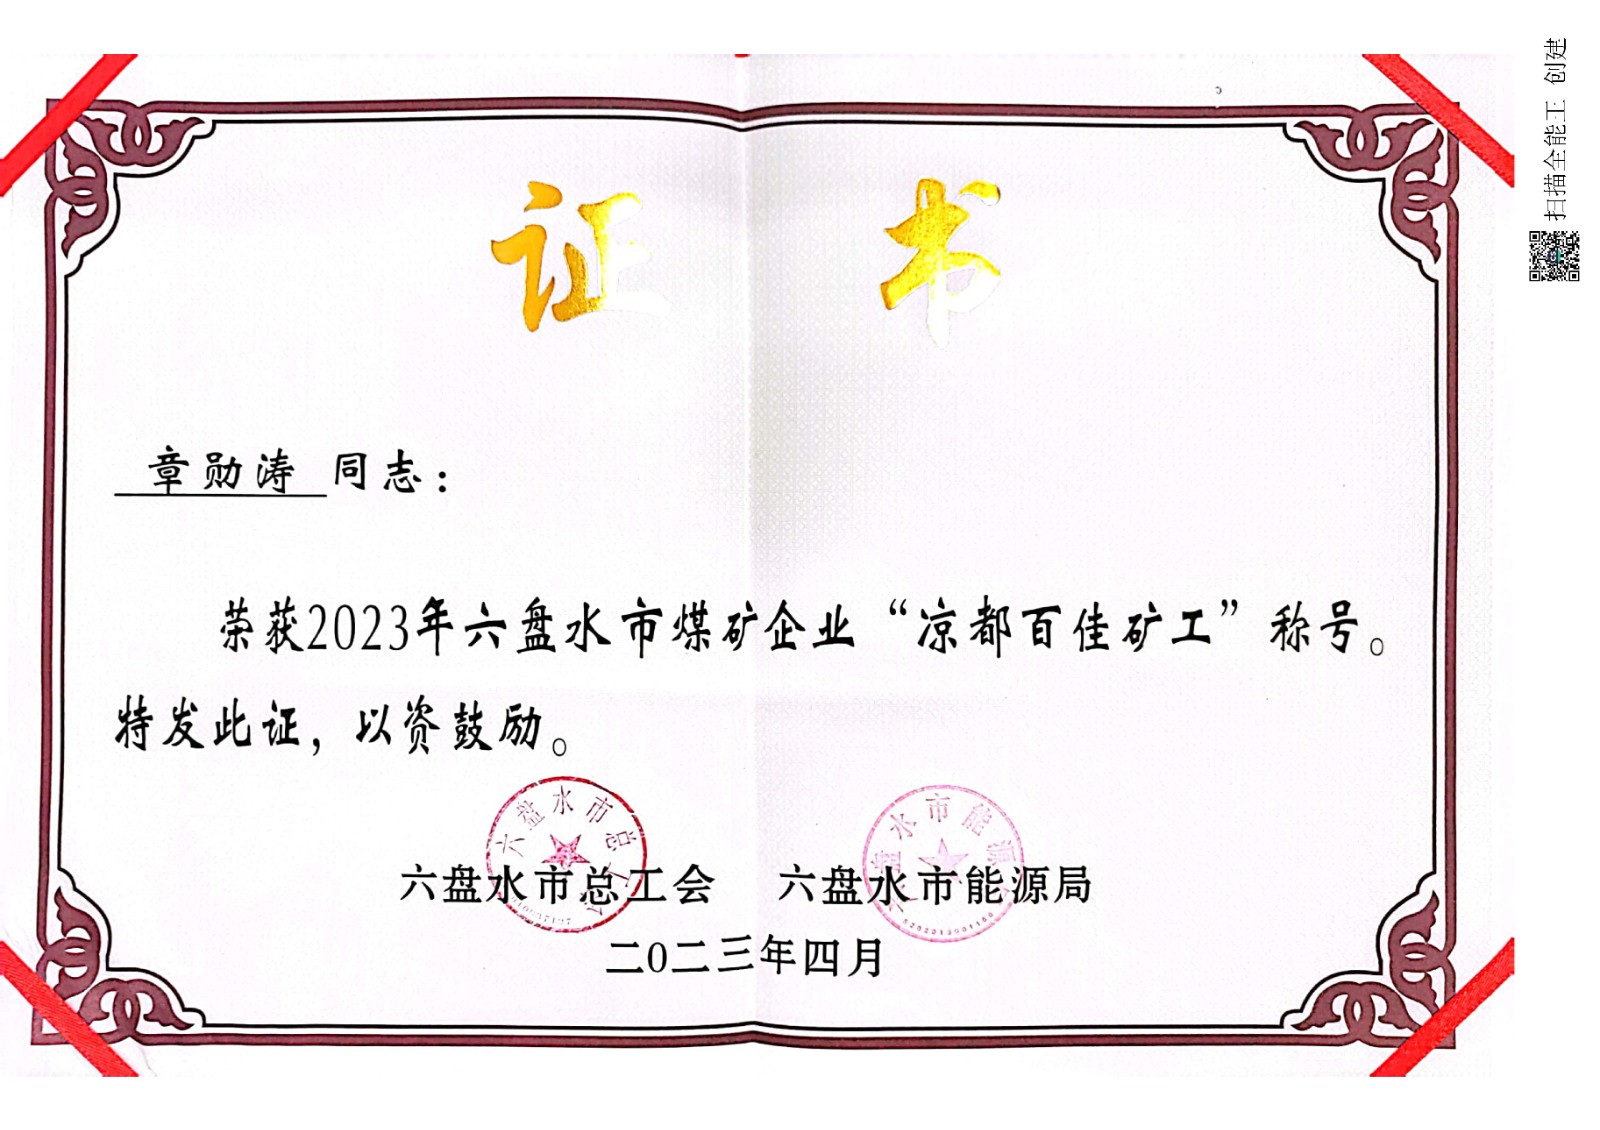 证书
章勋涛 同志：
荣获2023年六盘水市煤矿企业“凉都百佳矿工”称号。
特发此证，以资鼓励。
六盘水市总工会 六盘水市能源局
二0二三年四月
六盘水市总工会
六盘水市能源局
扫描全能王 创建